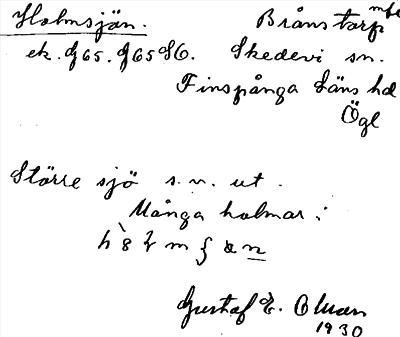 Holmsjön. Brånstorp mfl
ek. G65. G65 SO. Skedevi sn.
Finspånga läns hd
Ögl
Större sjö s.n. ut.
Många holmar i
Gustaf E.
1930